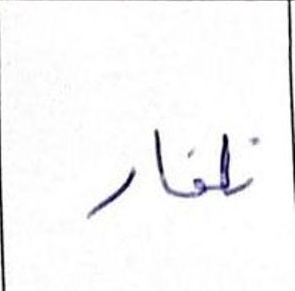 ظفار